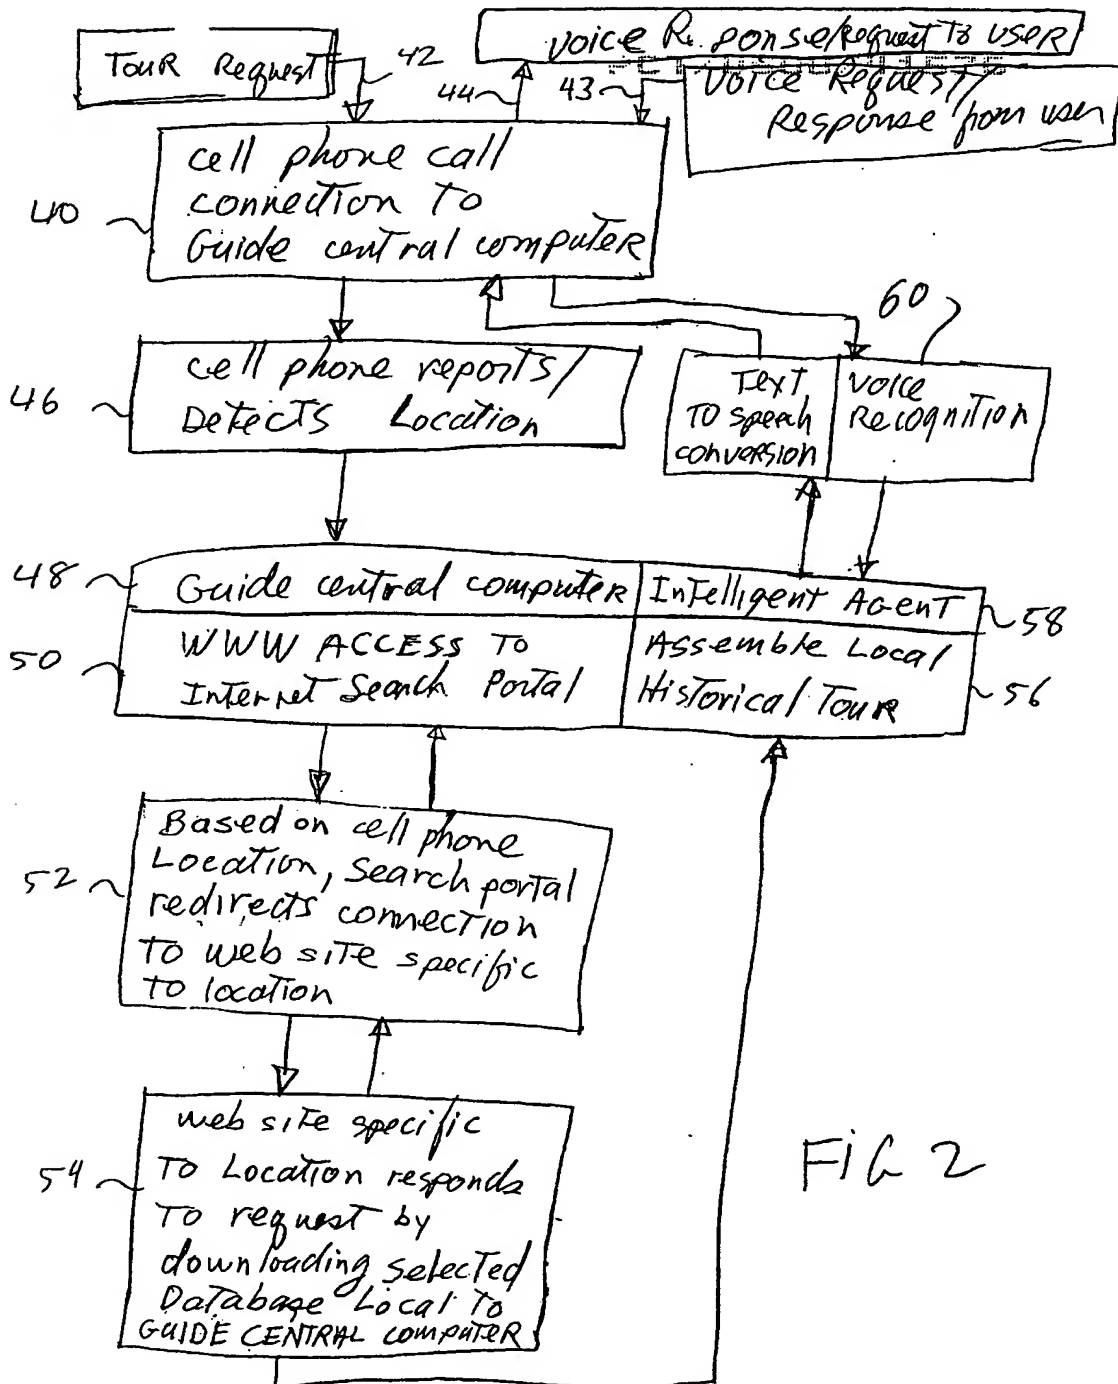 Tour Request
42
Voice R. ponse/Request To User
44
43
Voice Request/
Response from user
40
Cell phone call
connection To
Guide central computer
46
Cell phone reports/
Detects Location
60
Text
To speech
conversion
Voice
Recognition
48
Guide central computer
Intelligent Agent
58
50
WWW ACCESS To
Internet Search Portal
Assemble Local
Historical Tour
56
52
Based on cell phone
Location, Search portal
redirects connection
To web site specific
To location
54
web site specific
To Location responds
To request by
downloading selected
Database Local To
GUIDE CENTRAL computer
FiG 2